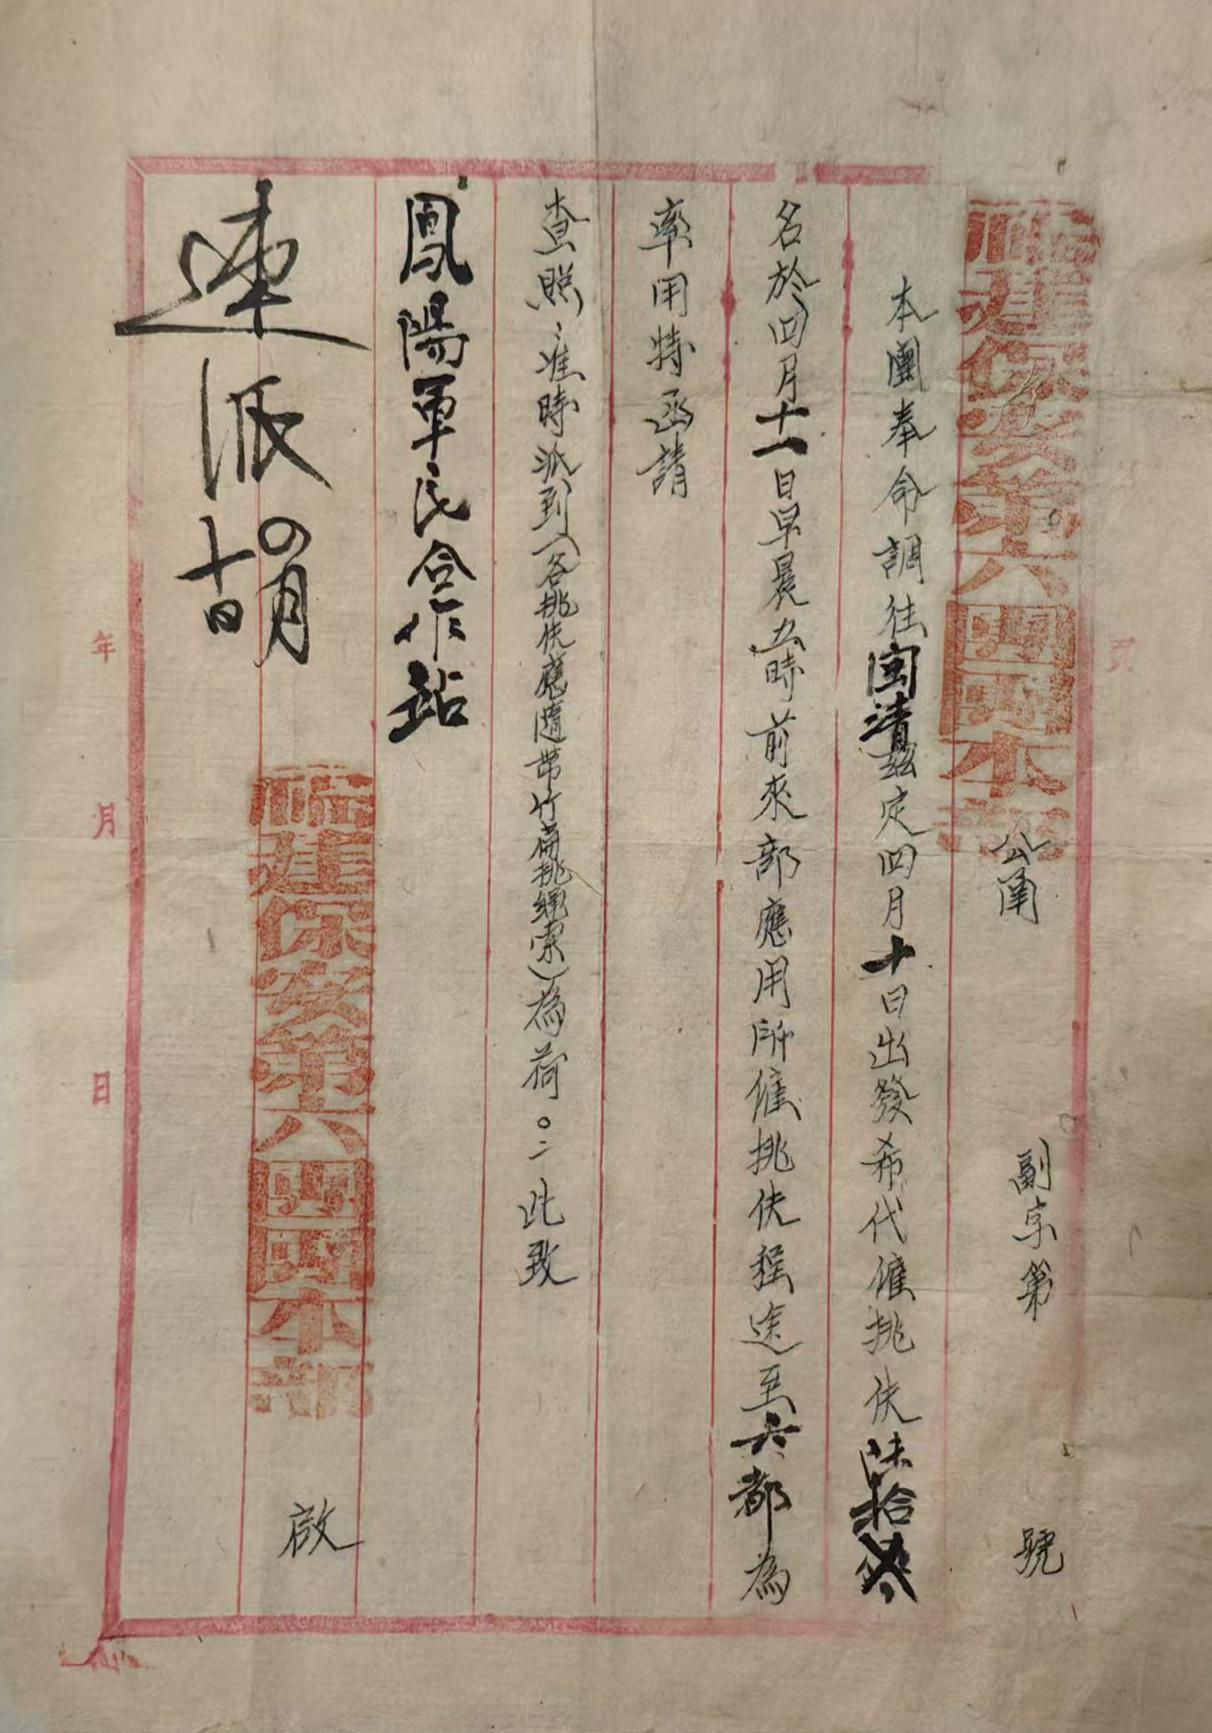 福建保安第六團團本部 公函 副字第 號
本團奉命調往閩清茲定四月十日出發希代僱挑伕陸拾
名於四月十一日早晨五時前來部應用所僱挑伕程途至六都為
率用特函請
查照准時派到(各挑伕應隨帶竹扁挑繩索)為荷。此致
鳳陽軍民合作站
福建保安第六團團本部 啟
速派 四月十日
年 月 日